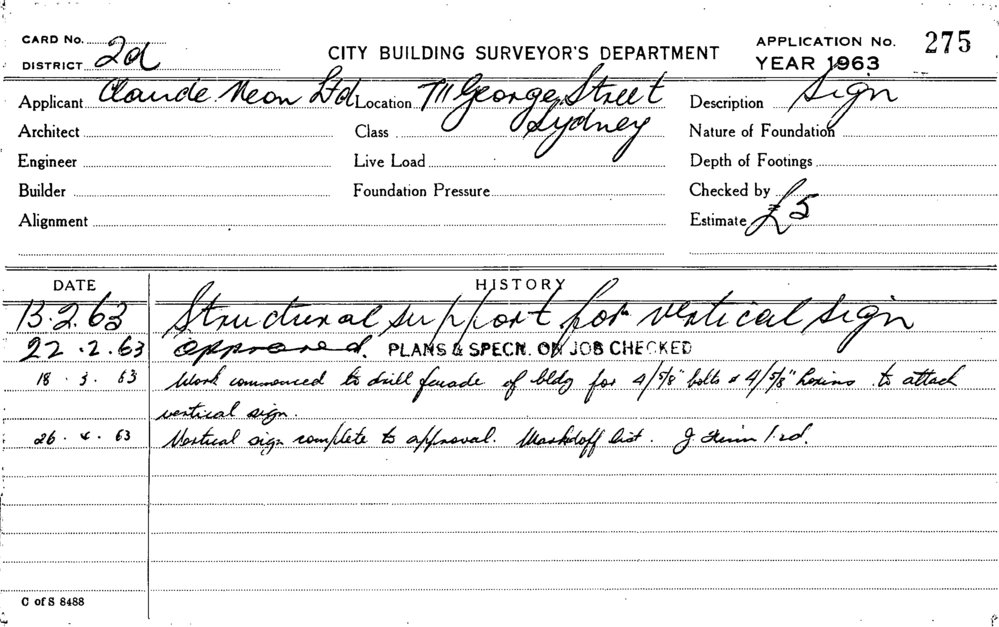 CARD No.
DISTRICT 2d
CITY BUILDING SURVEYOR'S DEPARTMENT
APPLICATION No. 275
YEAR 1963
Applicant Claude Neon Ltd Location 711 George Street Sydney Description Sign
Architect Class Nature of Foundation
Engineer Live Load Depth of Footings
Builder Foundation Pressure Checked by
Alignment Estimate £5
DATE HISTORY
13.2.63 Structural support for vertical sign
22.2.63 approved. PLANS & SPECN. ON JOB CHECKED
18.3.63 Work commenced to drill facade of bldg for 4/5/8" bolts & 4/5/8" to attach
vertical sign.
26.4.63 Vertical sign complete to approval. Markdoff list. J
C of S 8488